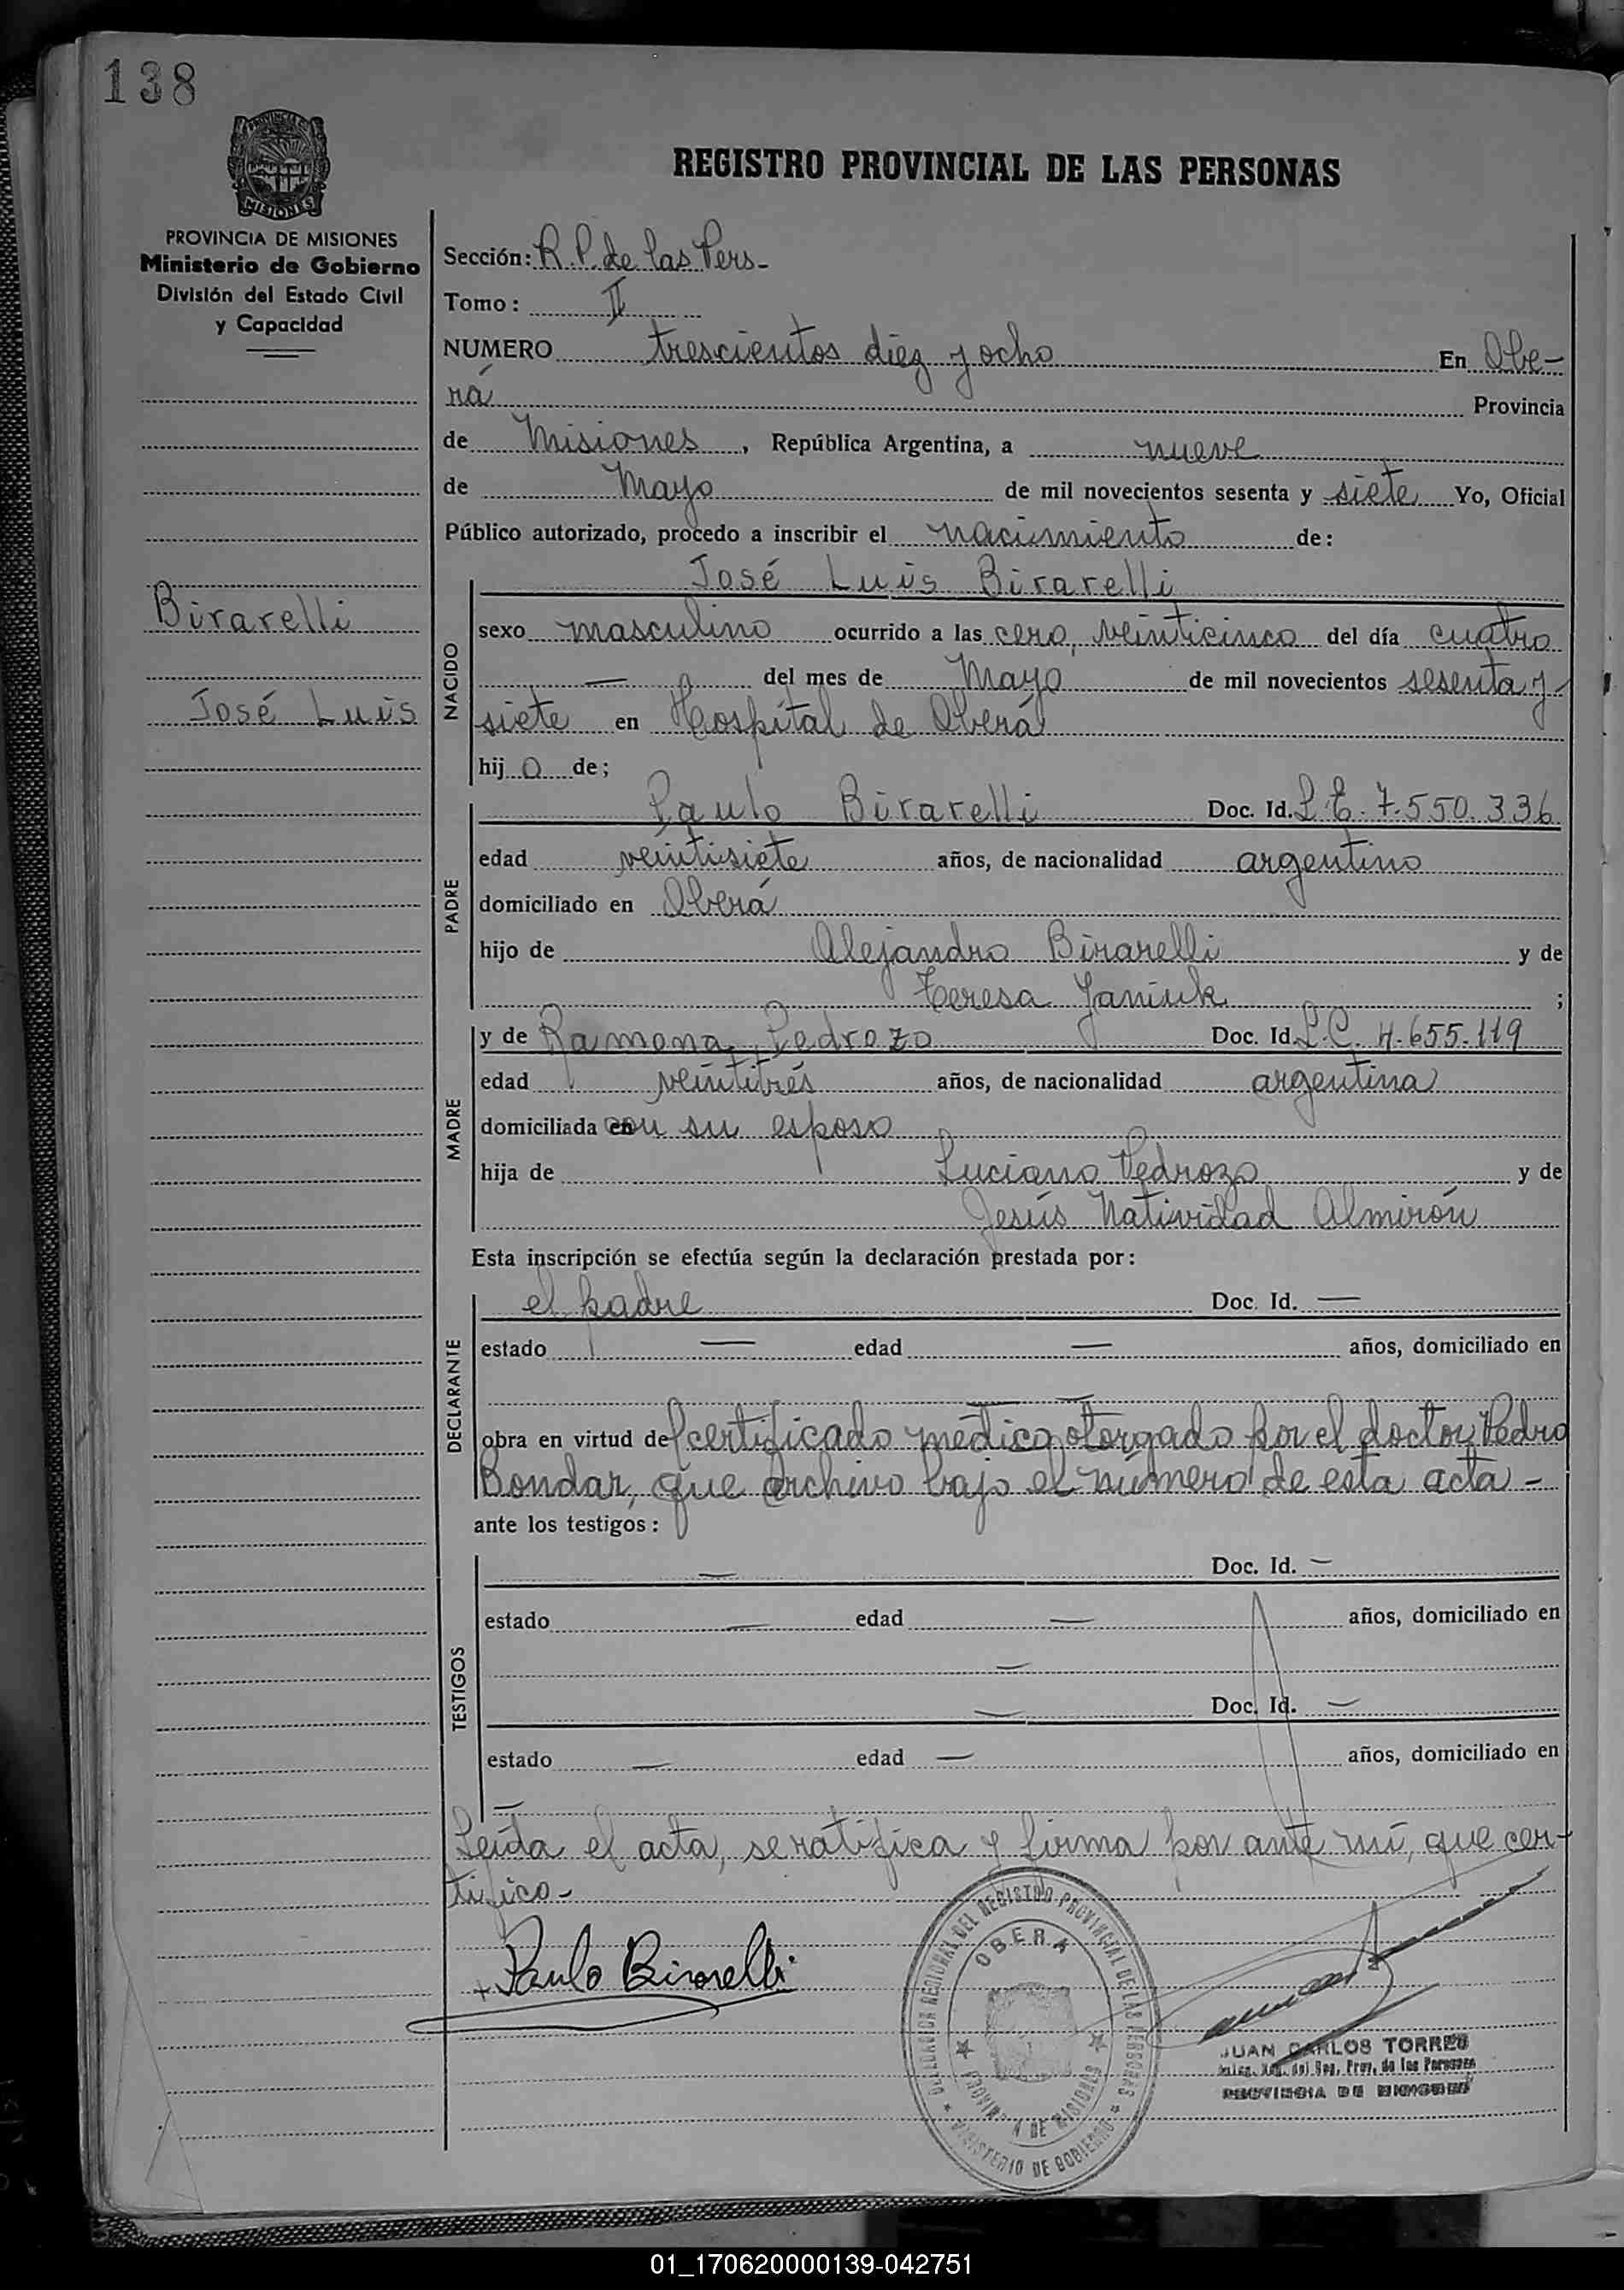 138
PROVINCIA DE
MISIONES
PROVINCIA DE MISIONES
Ministerio de Gobierno
División del Estado Civil
y Capacidad
Birarelli
José Luis
REGISTRO PROVINCIAL DE LAS PERSONAS
Sección: R. P. de las Pers-
Tomo: II
NUMERO trescientos diez y ocho En Obe-
rá Provincia
de Misiones, República Argentina, a nueve
de Mayo de mil novecientos sesenta y siete Yo, Oficial
Público autorizado, procedo a inscribir el nacimiento de:
José Luis Birarelli
NACIDO
sexo masculino ocurrido a las cero, veinticinco del día cuatro
— del mes de Mayo de mil novecientos sesenta y
siete en Hospital de Oberá
hij o de;
PADRE
Paulo Birarelli Doc. Id. L. E. 7.550.336
edad veintisiete años, de nacionalidad argentino
domiciliado en Oberá
hijo de Alejandro Birarelli y de
Teresa Janiuk ;
MADRE
y de Ramona Pedrozo Doc. Id. L.C. 4.655.119
edad veintitrés años, de nacionalidad argentina
domiciliada con su esposo
hija de Luciano Pedrozo y de
Jesús Natividad Almirón
Esta inscripción se efectúa según la declaración prestada por:
DECLARANTE
el padre Doc. Id. —
estado — edad — años, domiciliado en
—
obra en virtud del certificado médico otorgado por el doctor Pedro
Bondar, que archivo bajo el número de esta acta -
ante los testigos:
TESTIGOS
— Doc. Id. —
estado — edad — años, domiciliado en
—
— Doc. Id. —
estado — edad — años, domiciliado en
—
Leída el acta, se ratifica y firma por ante mí, que cer-
tifico-
Paulo Birarelli
DELEGACION REGIONAL DEL REGISTRO PROVINCIAL DE LAS PERSONAS
OBERA
PROVINCIA DE MISIONES
MINISTERIO DE GOBIERNO
JUAN CARLOS TORRES
del Reg. Prov. de las Personas
PROVINCIA DE MISIONES
01_170620000139-042751